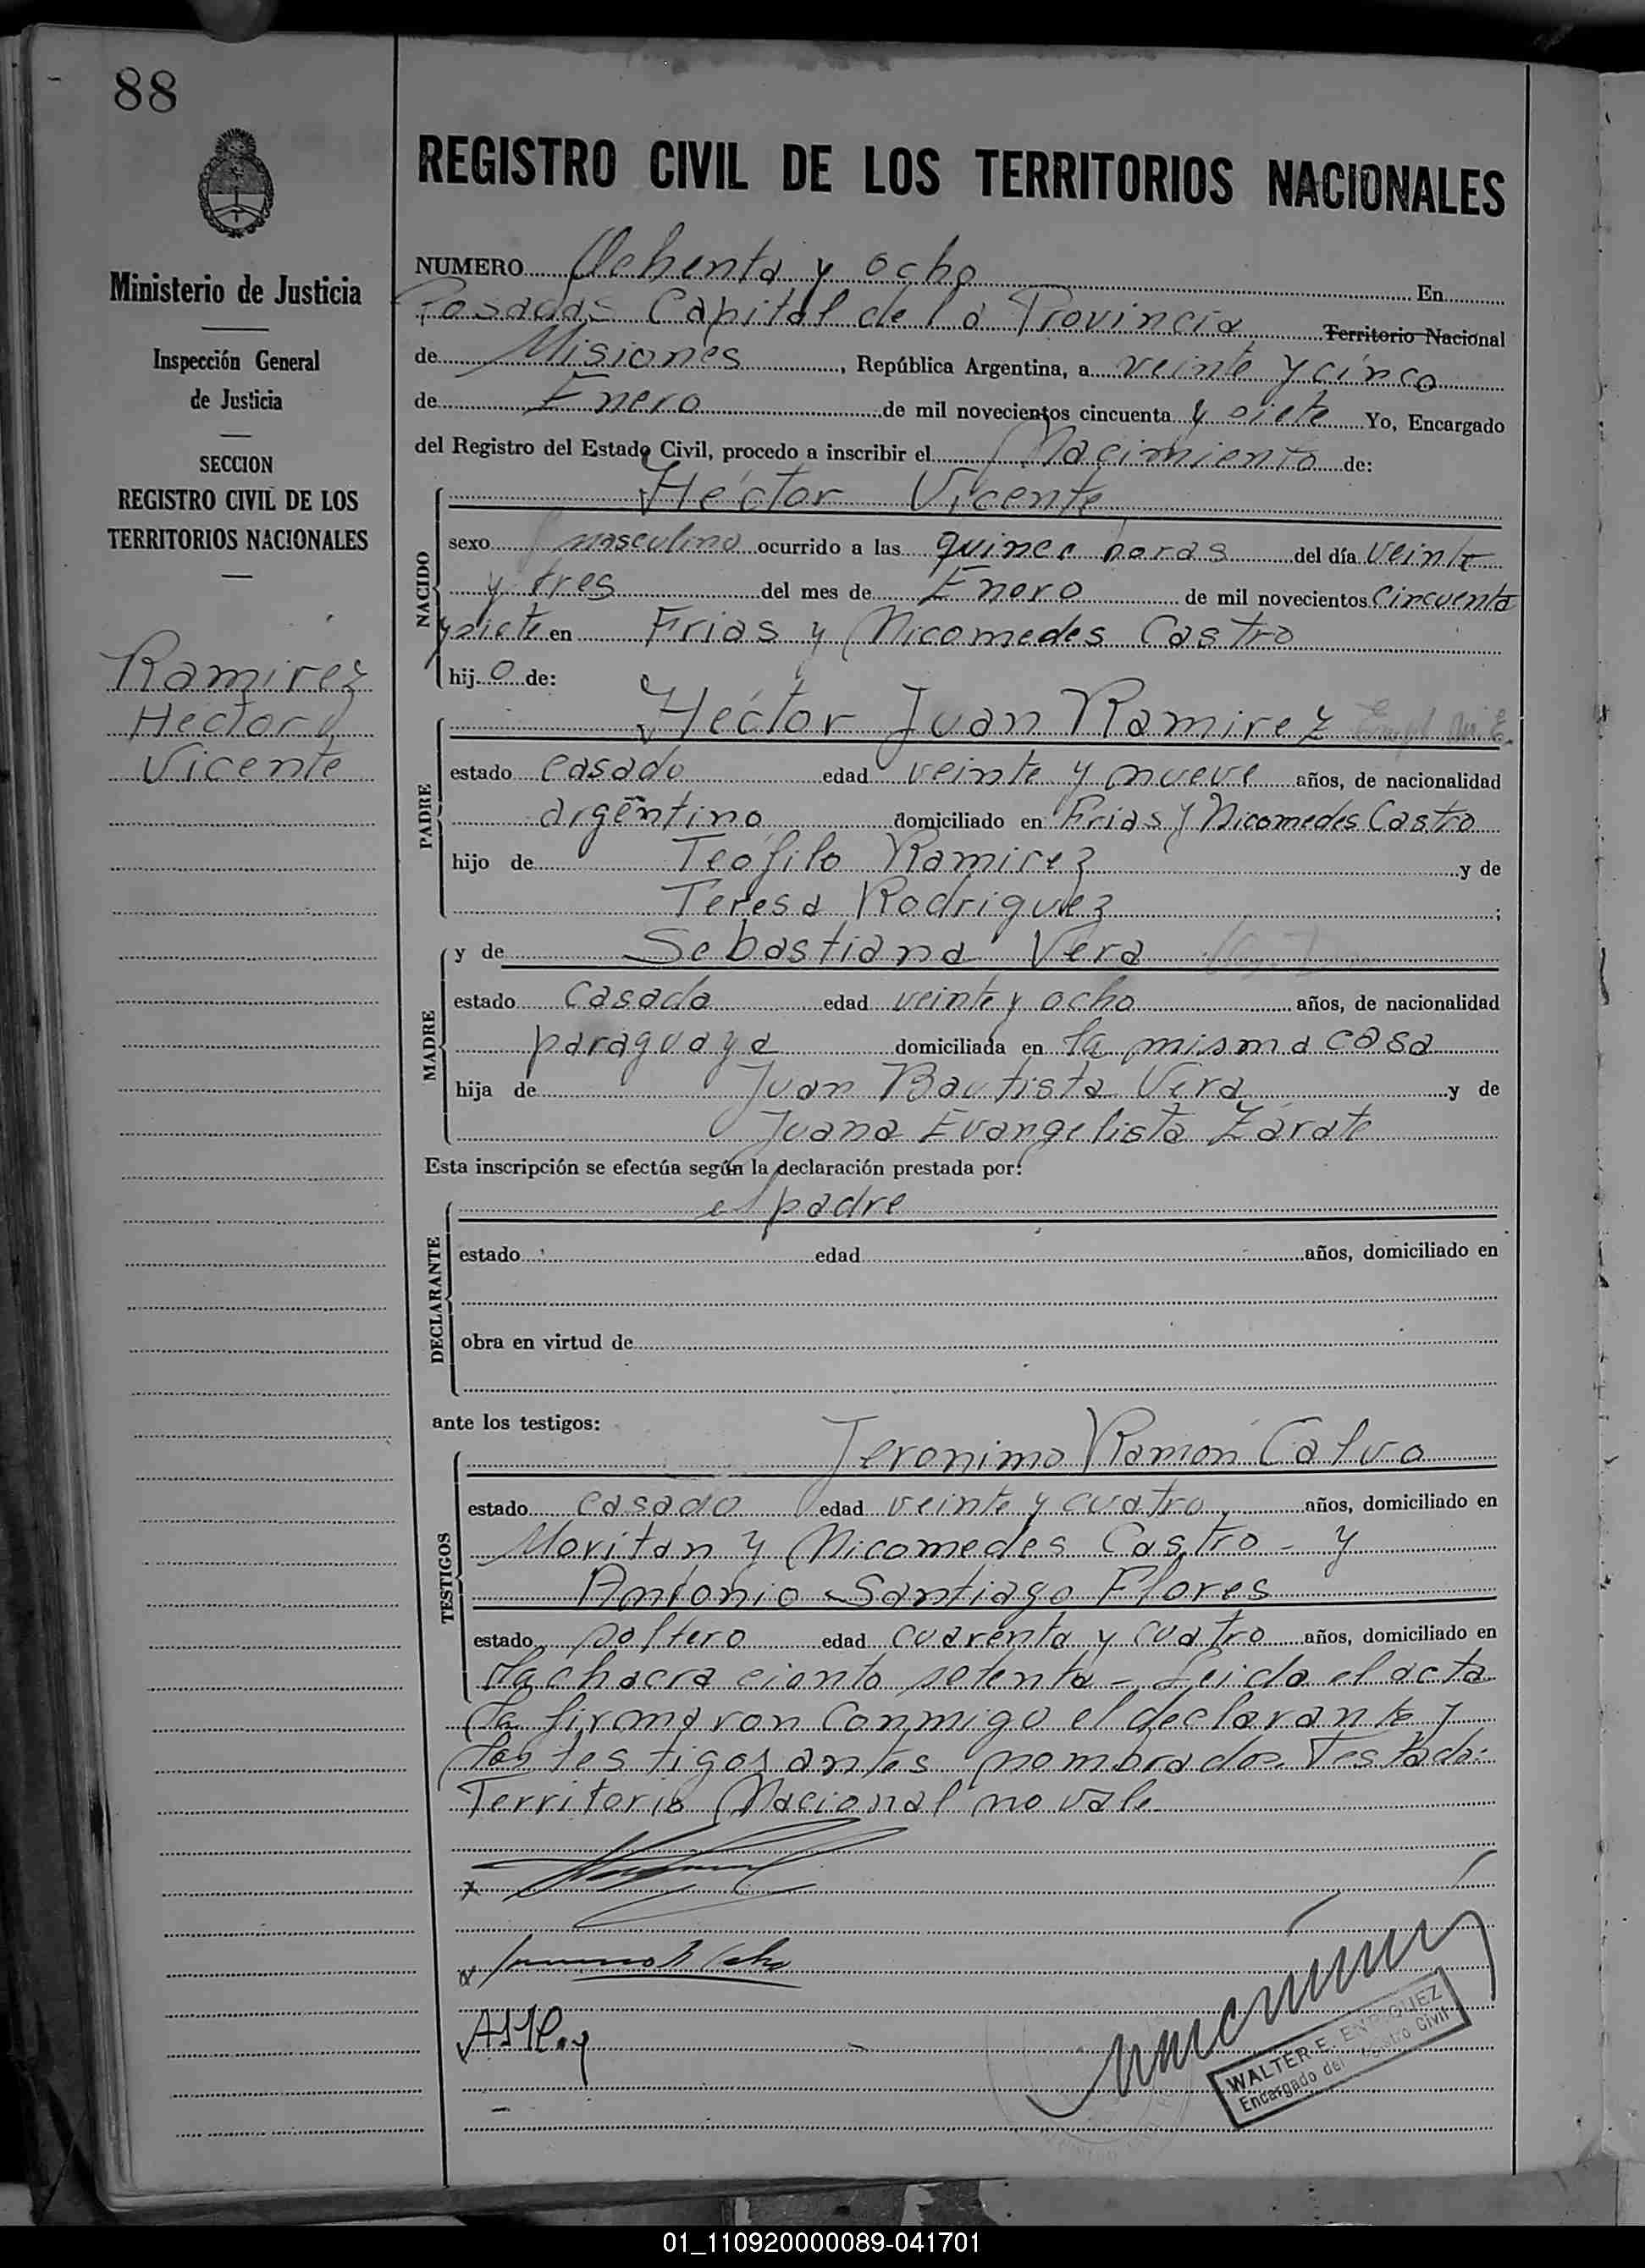 88
Ministerio de Justicia
Inspección General
de Justicia
SECCION
REGISTRO CIVIL DE LOS
TERRITORIOS NACIONALES
Ramirez
Hector
Vicente
REGISTRO CIVIL DE LOS TERRITORIOS NACIONALES
NUMERO Ochenta y ocho En
Posadas Capital de la Provincia Territorio Nacional
de Misiones, República Argentina, a veinte y cinco
de Enero de mil novecientos cincuenta y siete Yo, Encargado
del Registro del Estado Civil, procedo a inscribir el Nacimiento de:
NACIDO
Héctor Vicente
sexo masculino ocurrido a las quince horas del día veinte
y tres del mes de Enero de mil novecientos cincuenta
y siete en Frias y Nicomedes Castro
hijo de:
PADRE
Héctor Juan Ramirez
estado casado edad veinte y nueve años, de nacionalidad
argentino domiciliado en Frias y Nicomedes Castro
hijo de Teófilo Ramirez y de
Teresa Rodriguez;
MADRE
y de Sebastiana Vera
estado casada edad veinte y ocho años, de nacionalidad
paraguaya domiciliada en la misma casa
hija de Juan Bautista Vera y de
Juana Evangelista Zárate
Esta inscripción se efectúa según la declaración prestada por:
DECLARANTE
el padre
estado edad años, domiciliado en
obra en virtud de
ante los testigos:
TESTIGOS
Jeronimo Ramon Calvo
estado casado edad veinte y cuatro años, domiciliado en
Moritan y Nicomedes Castro - y
Antonio Santiago Flores
estado soltero edad cuarenta y cuatro años, domiciliado en
la chacra ciento setenta - Leida el acta
la firmaron conmigo el declarante y
los testigos antes nombrados. Testado:
Territorio Nacional no vale
WALTER E. ENRIQUEZ
Encargado del Registro Civil
01_110920000089-041701